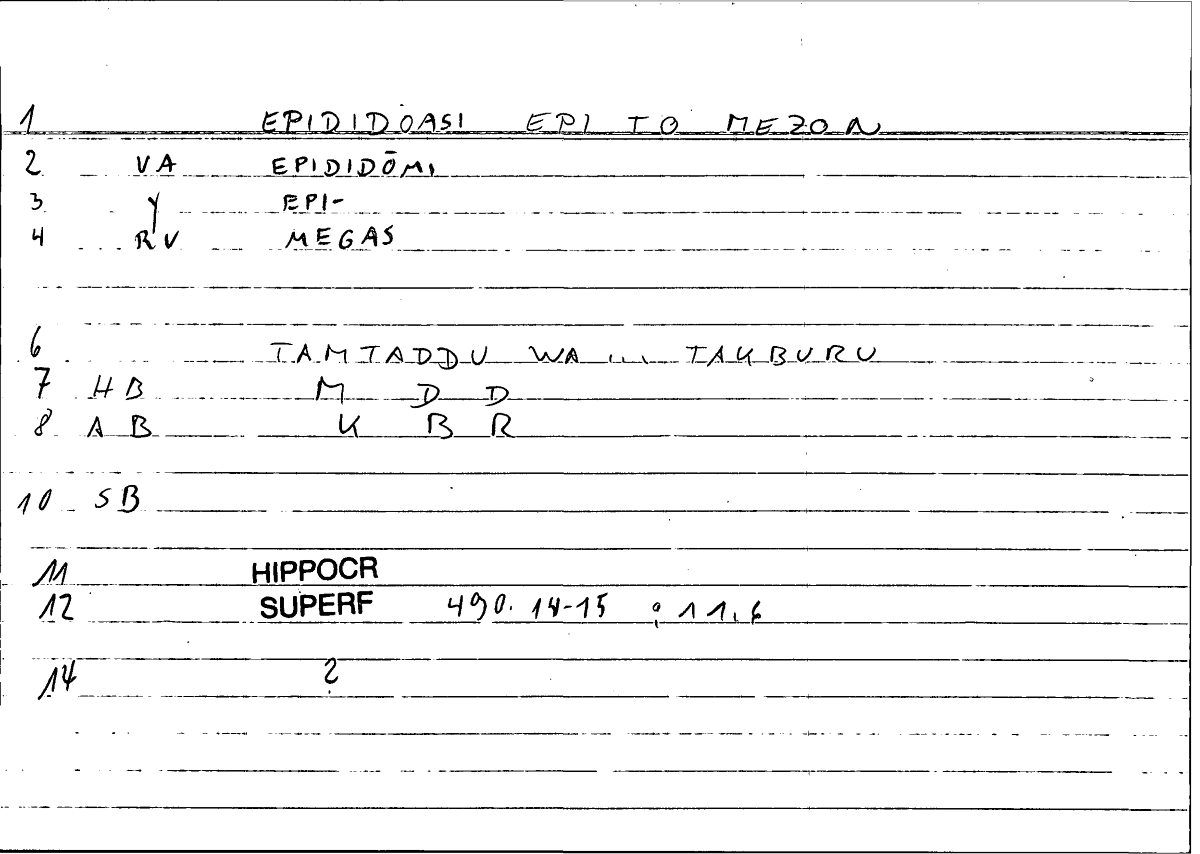 1 EPIDIDOASI EPI TO MEZON
2 VA EPIDIDŌMI
3 Y EPI-
4 RV MEGAS
6 TAMTADDU WA ... TAKBURU
7 HB M D D
8 AB K B R
10 SB
11 HIPPOCR
12 SUPERF 490. 14-15 ; 11.6
14 2